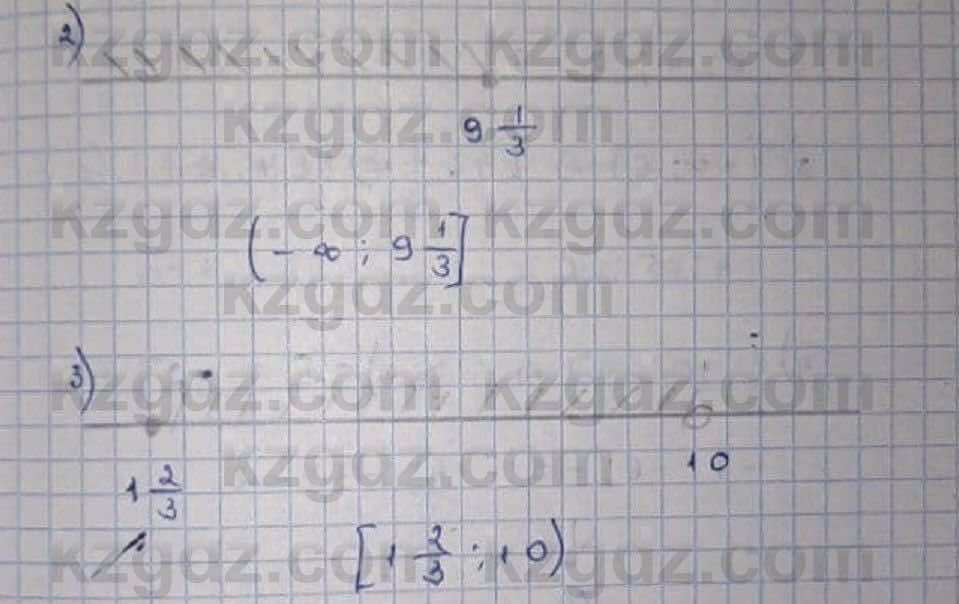 2)
9 1/3
(-∞; 9 1/3]
3)
1 2/3 10
[1 2/3; 10)
kzgdz.com kzgdz.com
kzgdz.com
kzgdz.com kzgdz.com
kzgdz.com
kzgdz.com kzgdz.com
kzgdz.com
kzgdz.com kzgdz.com